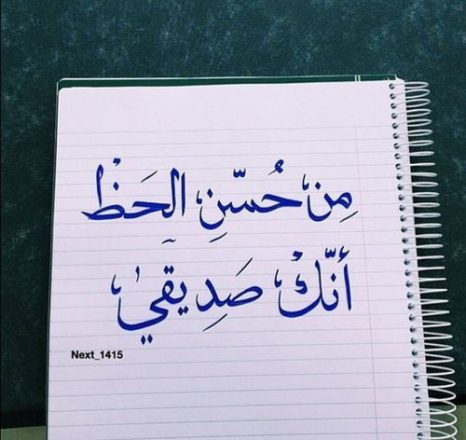 مِن حُسّنِ الِحَظْ
أنّكْ صَدِيقي
Next_1415